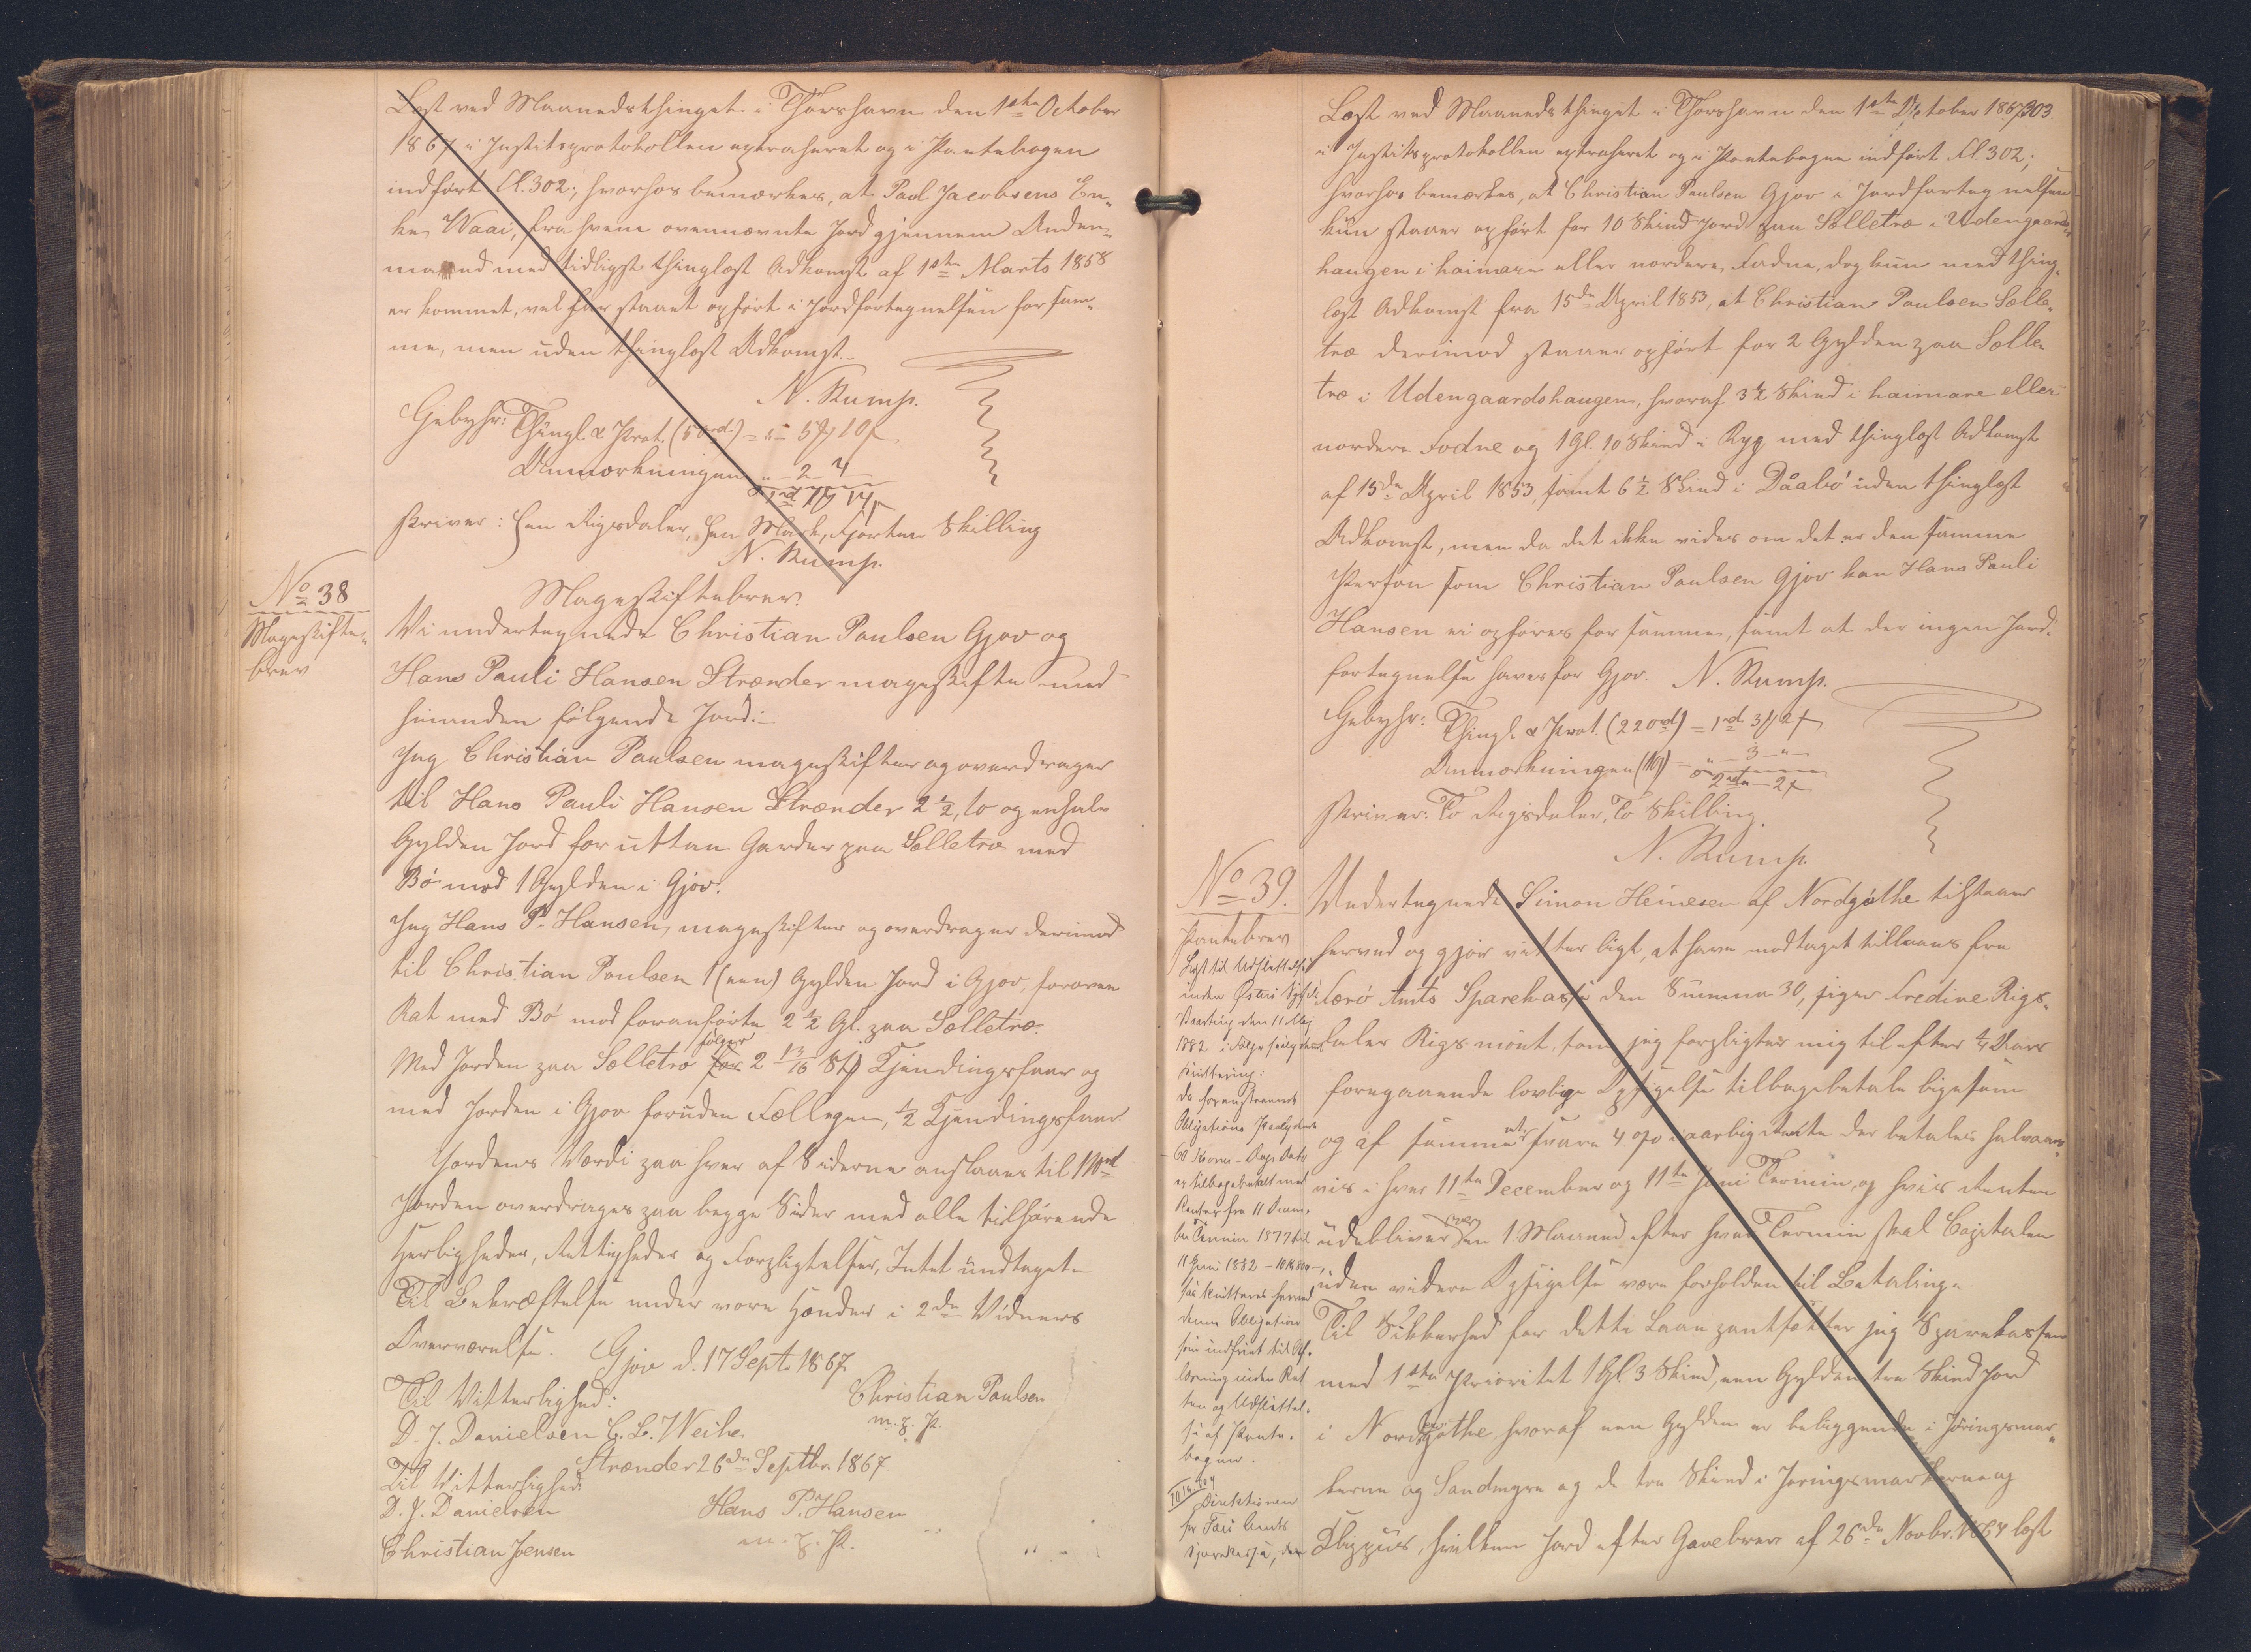 Læst ved Maanedsthinget i Thorshavn den 1ste October
1867 i Justitsprotokollen extraheret og i Pantebogen
indført Fl. 302; hvorhos bemærkes, at Poul Jacobsens En-
ke, Waai, fra hvem ovennævnte Jord gjennem Anden-
mand med tidligst thinglæst Adkomst af 1ste Marts 1858
er kommet, vel har staaet opført i Jordfortegnelsen for sam-
me, men uden thinglæst Adkomst.
N. Rump.
Gebyhr: Thingl. & Prot. (50rd.) = " - 5 10
Anmærkningen " - 2 4
1rd 1 14
skriver: Een Rigsdaler, Een Mark, Fjorten Skilling
N. Rump.
No 38
Mageskifte-
brev
Mageskiftebrev.
Vi undertegnede Christian Paulsen Gjov og
Hans Pauli Hansen Strænder mageskifte med
hinanden følgende Jord:
Jeg Christian Paulsen mageskifter og overdrager
til Hans Pauli Hansen Strænder 2 1/2, to og enhalv
Gylden Jord for uttan Garder paa Selletræ med
Bø mod 1 Gylden i Gjov.
Jeg Hans P. Hansen, mageskifter og overdrager derimod
til Christian Poulsen 1 (een) Gylden Jord i Gjov, foroven
Rat med Bø mod foranførte 2 1/2 Gl. paa Selletræ.
Med Jorden paa Selletræ følger 2 13/16 St) Kjendingsfaar og
med Jorden i Gjov foruden Fælleqen, 1/2 Kjendingsfaar.
Jordens Værdi paa hver af Siderne anslaaes til 110rd
Jorden overdrages paa begge Sider med alle tilhørende
Herligheder, Rettigheder og Forpligtelser, Intet undtaget.
Til Bekræftelse under vore Hænder i 2de Vidners
Overværelse. Gjov d. 17 Sept. 1867.
Til Vitterlighed: Christian Paulsen
D. J. Danielsen C. L. Weihe m. f. P.
Strænder 26de Septbr. 1867
Til Vitterlighed:
D. J. Danielsen Hans P. Hansen
Christian Joensen m. f. P.
303.
Læst ved Maanedsthinget i Thorshavn den 1ste October 1867
i Justitsprotokollen extraheret og i Pantebogen indført Fl. 302;
hvorhos bemærkes, at Christian Paulsen Gjov i Jordfortegnelsen
kun staaer opført for 10 Skind Jord paa Selletræ i Udengaards-
haugen i haimare eller nordere, Fodne, dog kun med thing-
læst Adkomst fra 15de April 1853, at Christian Paulsen Selle-
træ derimod staaer opført for 2 Gylden paa Selle-
træ i Udengaardshaugen, hvoraf 3 1/2 Skind i haimare eller
nordere Fodne og 1 Gl. 10 Skind i Ryg med thinglæst Adkomst
af 15de April 1853, samt 6 1/2 Skind i Dåabø uden thinglæst
Adkomst, men da det ikke vides om det er den samme
Person som Christian Paulsen Gjov kan Hans Pauli
Hansen ei opføres for samme, samt at der ingen Jord-
fortegnelse haves for Gjov. N. Rump.
Gebyhr: Thingl. & Prot. (220rd) = 1rd 3 2
Anmærkningen - " - 3 "
2rd " 2
skriver: To Rigsdaler, To Skilling.
N. Rump.
No 39.
Pantebrev
Læst til Udslettelse
inden Østerø Syssels
Vaarting den 11 Maj
1882 i Følge saalydende
Kvittering:
Da foranstaaende
Obligations Paalydende
- 60 Kroner -
er tilbagebetalt med
Renter fra 11 Decem-
ber Termin 1877 til
11 Juni 1882
saa kvitteres herved
denne Obligation
som indfriet til Af-
læsning inden Ret
ten og Udslettel-
se af Pante-
bogen.
Direktionen
for Færø Amts
Sparekasse, den
Undertegnede Simon Heinesen af Nordgøthe tilstaaer
herved og gjør vitterligt, at have modtaget tillaans fra
Færø Amts Sparekasse den Summa 30, siger tredive Rigs-
daler Rigsmønt, som jeg forpligter mig til efter 1/4 Aars
foregaaende lovlige Opsigelse tilbagebetale ligesom
og af samme at svare 4 o/o i aarlig Rente der betales halvaar-
vis i hver 11te December og 11te Juni Termin, og hvis Renten
udebliver over en 1 Maaned efter hver Termin skal Capitalen
uden videre Opsigelse være forfalden til Betaling.
Til Sikkerhed for dette Laan pantsætter jeg Sparekassen
med 1ste Prioritet 1 Gl. 3 Skind, een Gylden tre Skind Jord
i Nordgøthe hvoraf een Gylden er beliggende i Jøringsmar-
kerne og Sandmyre og de tre Skind i Jøringsmarkerne og
Klippus, hvilken Jord efter Gavebrev af 26de Novbr. 1864 læst